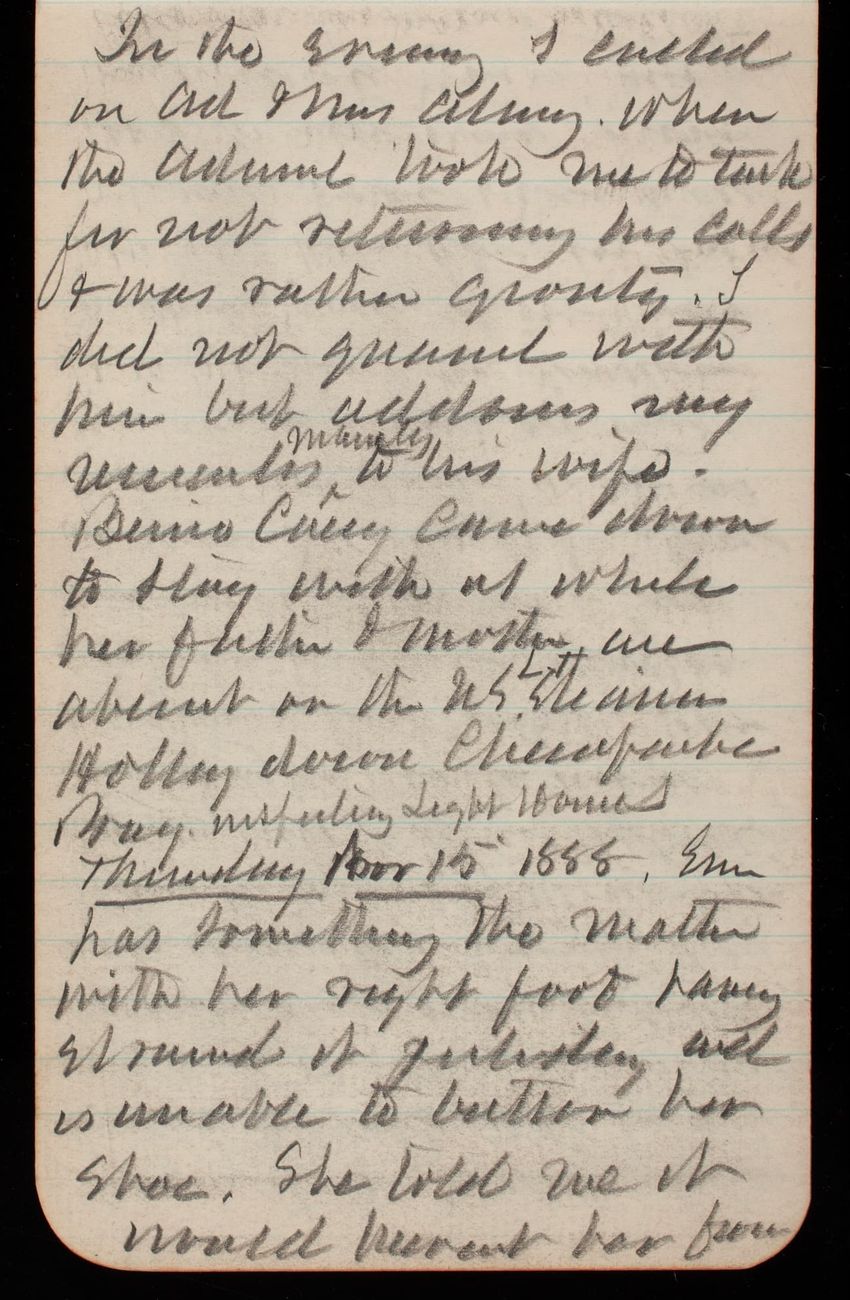 In the evening I called
on Ad & Mrs Almy. When
the Admiral took me to task
for not returning his calls
& was rather grouty. I
did not quarrel with
him but address my
remarks mainly to his wife.
Casey came down
to stay with us while
her father & mother are
absent on the US L H Steamer
Holly down Chesapeake
Bay inspecting Light Houses
Thursday Nov 15 1888. Em
has something the matter
with her right foot having
strained it yesterday and
is unable to button her
shoe. She told me it
would prevent her from